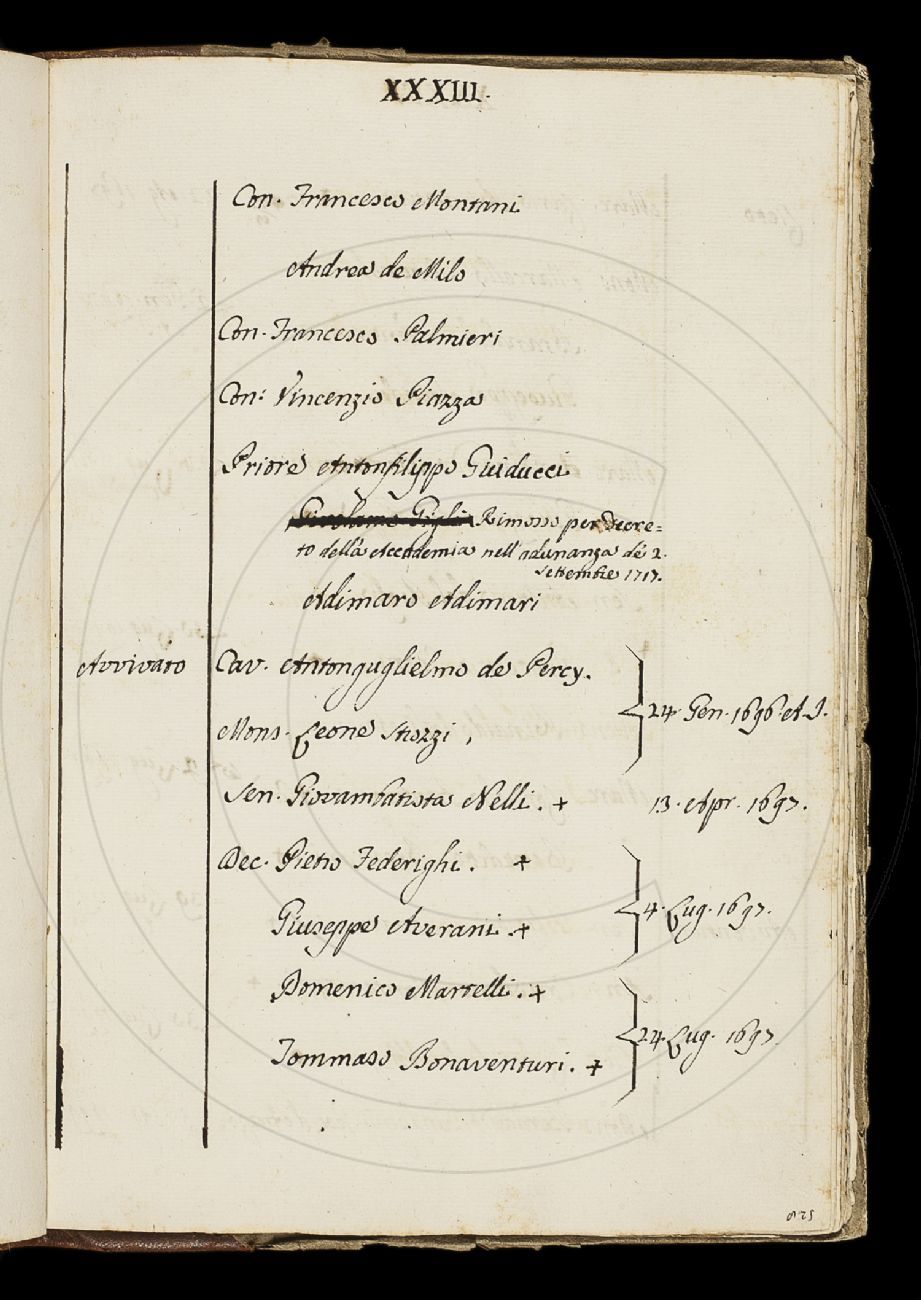 XXXIII.
Con. Francesco Montani
Andrea de Milo
Con. Francesco Palmieri
Con: Vincenzio Piazza
Priore Antonfilippo Guiducci
Girolamo Gigli Rimosso per Decre=
to della Accademia nell'adunanza de' 2.
Settembre 1717.
Adimaro Adimari
Avvivato Cav. Antonguglielmo de Percy.
24. Gen. 1696. A. I.
Mons. Leone Strozzi.
Sen. Giovambatista Nelli. + 13. Apr. 1697.
Dec. Pietro Federighi. +
4. Lug. 1697.
Giuseppe Averani. +
Domenico Martelli. +
24. Lug. 1697.
Tommaso Bonaventuri. +